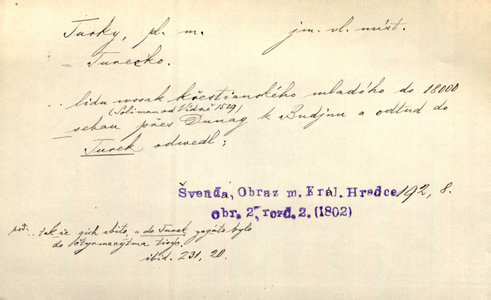 Turky, pl. m.   jm. vl. míst.
– Turecko.
lidu wssak křestianského mladého do 18000
(Soliman od Vídně 1529)
sebau přes Dunag k Budjnu a odtud do
Turek odwedl;
Švenda, Obraz m. Král. Hradce 192, 8.
obr. 2, rozd. 2. (1802)
tak že gich zbito, a do Turek zagato bylo
do čtyrmecýtma tisýc.
ibid. 231, 20.